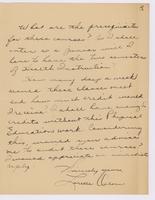 What are the prerequisites
for these courses? If I shall
enter as a Junior will I
have to have the two semesters
of Health Instruction?
How many days a week
would these classes meet
and how much credit would
I receive? I shall have enough
credits without this Physical
Education work. Considering
this, would you advise
me to enter these courses?
I would appreciate an immediate
reply.
Sincerely yours,